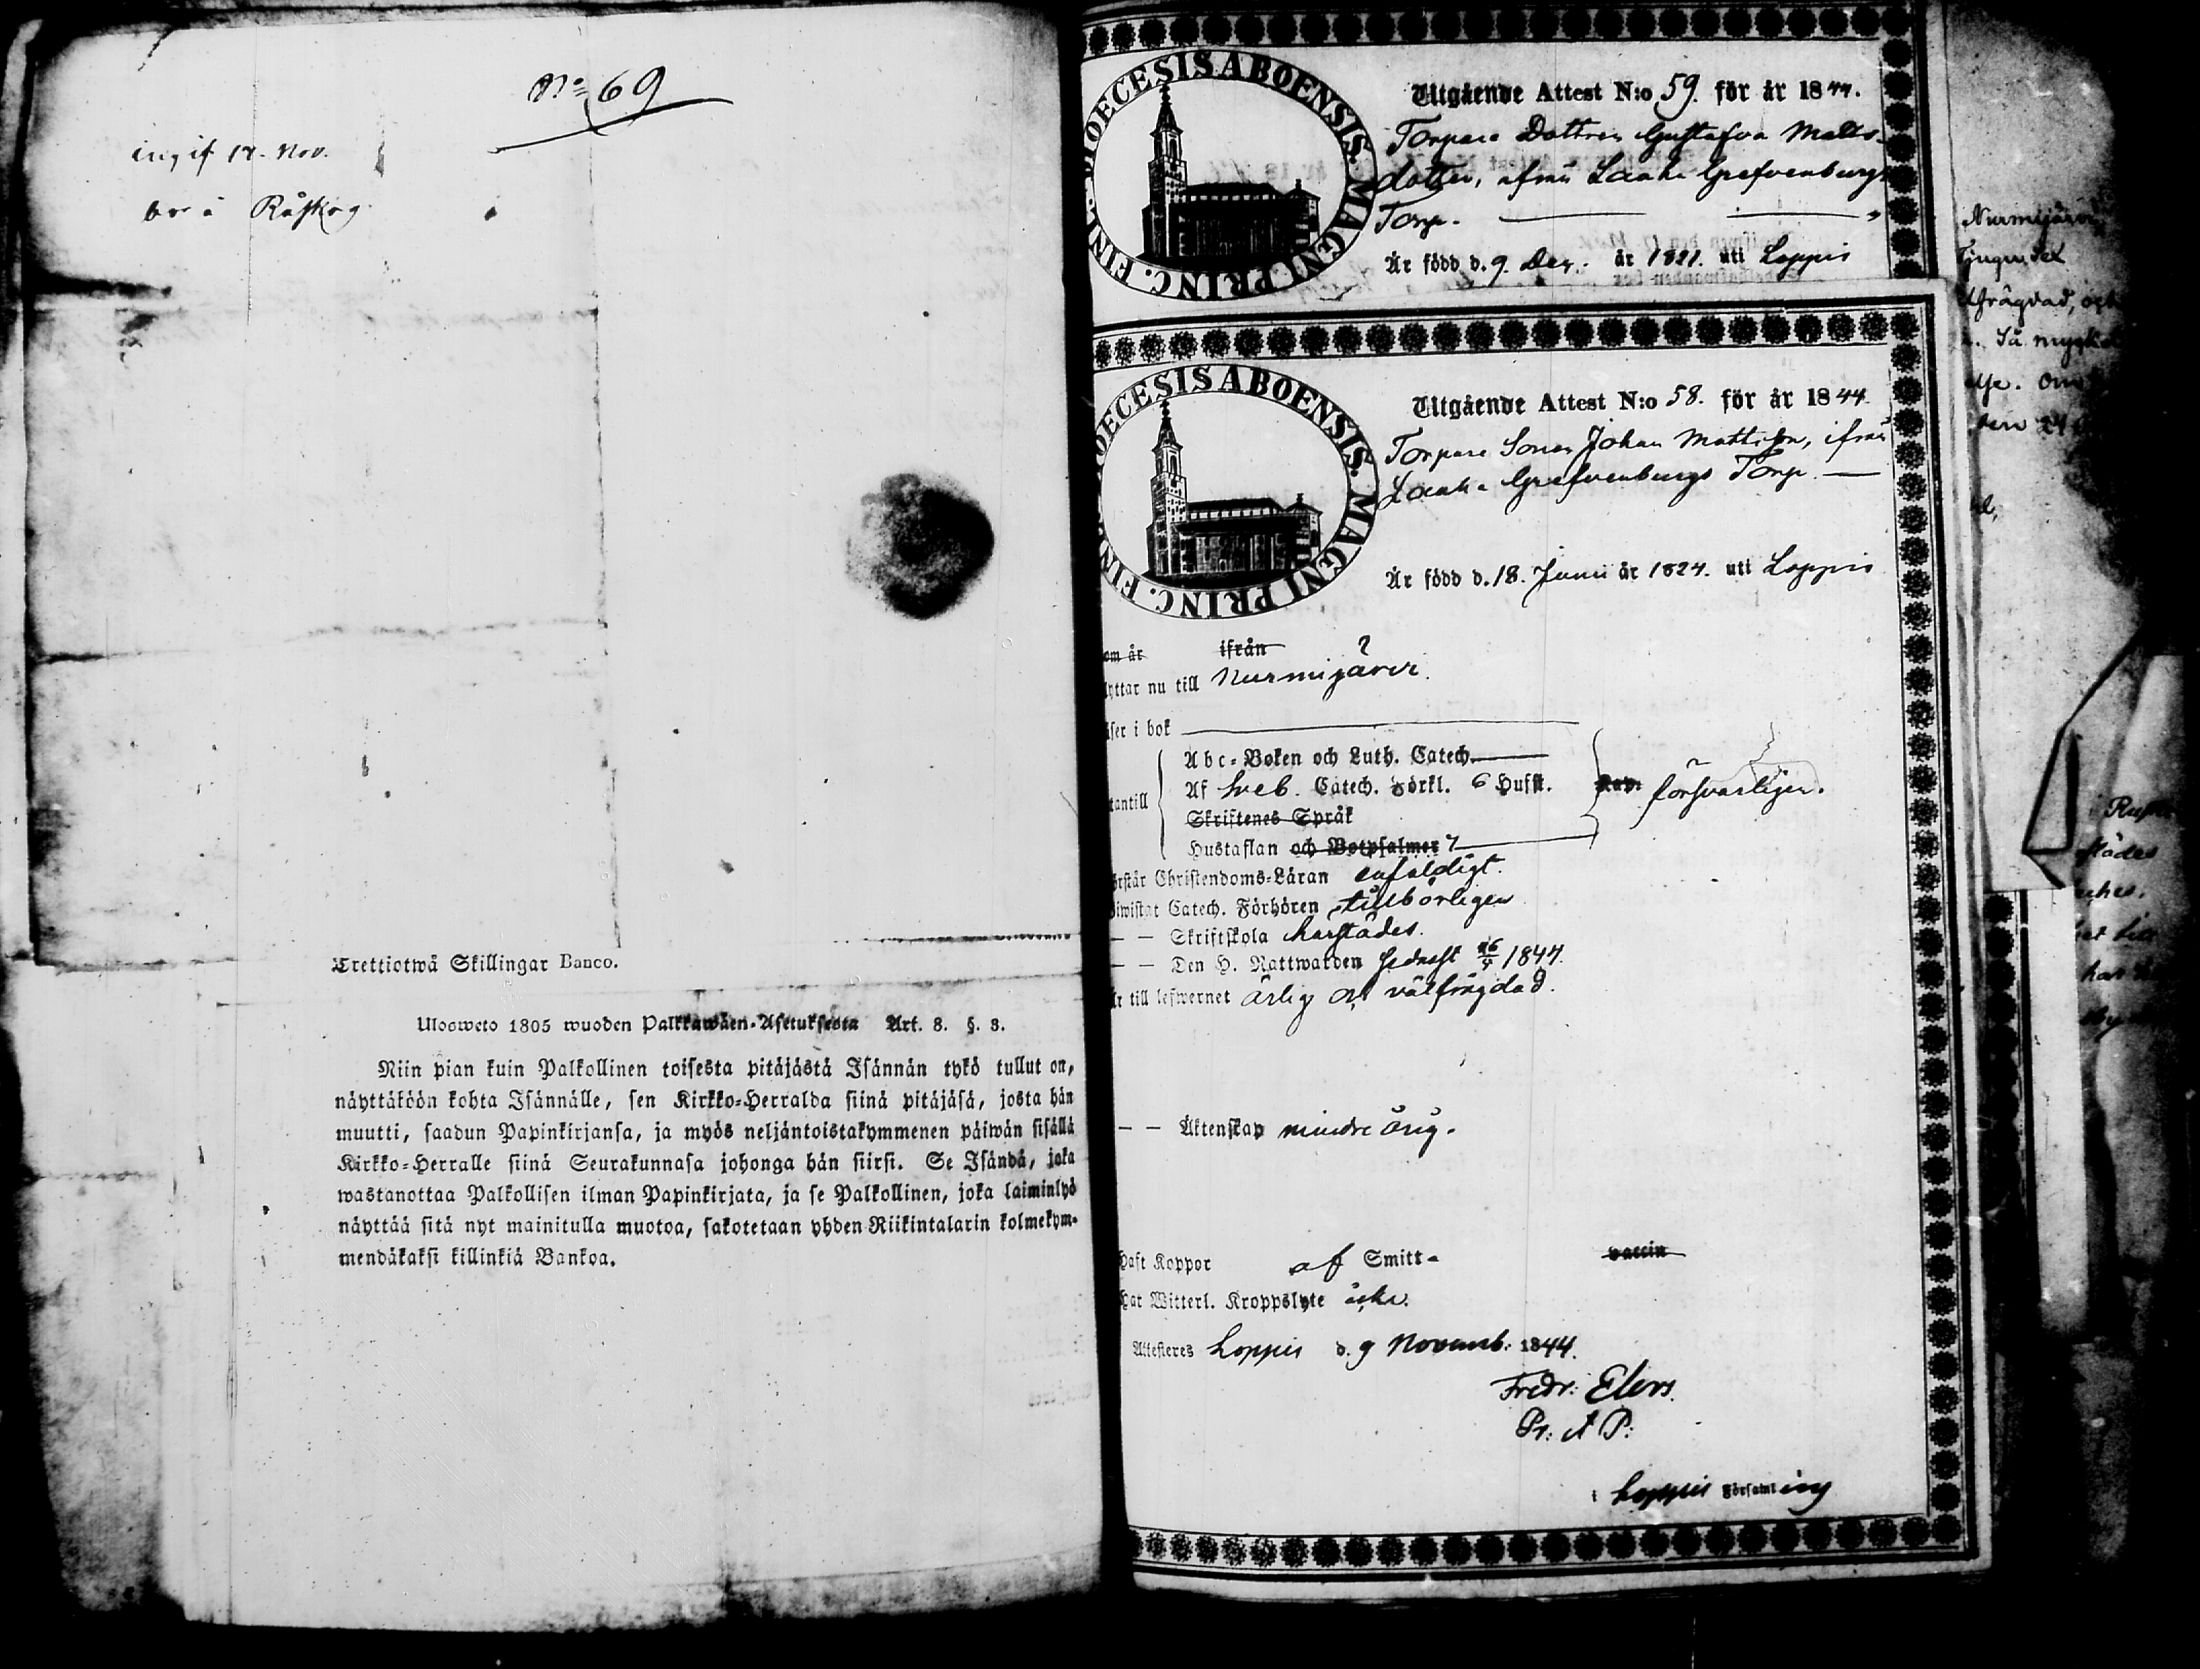 No 69
ingif 17. Nov.
bor i Råskog.
Trettiotwå Skillingar Banco.
Ulosweto 1805 wuoden Palkkawäen-Asetuksesta Art. 8. §. 3.
Niin pian kuin Palkollinen toisesta pitäjästä Isännän tykö tullut on,
näyttäköön kohta Isännälle, sen Kirkko-Herralda siinä pitäjäsä, josta hän
muutti, saadun Papinkirjansa, ja myös neljäntoistakymmenen päiwän sisällä
Kirkko-Herralle siinä Seurakunnasa johonga hän siirsi. Se Isändä, joka
wastanottaa Palkollisen ilman Papinkirjata, ja se Palkollinen, joka laiminlyö
näyttää sitä nyt mainitulla muotoa, sakotetaan yhden Riikintalarin kolmekym-
mendäkaksi killinkiä Bankoa.
DIOECESIS ABOENSIS. MAGNI PRINC. FINL.
Utgående Attest N:o 59. för år 1844.
Torpare Dottren Gustafva Matts-
dotter, ifrån Laaka Grefvenburgs
Torp.
Är född d. 9. Dec. år 1821. uti Loppis
OECESIS ABOENSIS. MAGNI PRINC. FIN
Utgående Attest N:o 58. för år 1844.
Torpare Sonen Johan Mattsson, ifrån
Laaka Grefvenburgs Torp.
Är född d. 18. Junii år 1824. uti Loppis
om år ifrån
lyttar nu till Nurmijärvi.
äser i bok
Abc-Boken och Luth. Catech.
tantill Af Sveb. Catech. Förkl. 6 Hufst. försvarligen.
Skriftenes Språk
Hustaflan och Botpsalmer
örstår Christendoms-Läran enfaldigt.
iwistat Catech. Förhören tillbörligen
— — Skriftskola härstädes.
— — Den H. Nattwarden sednast 1844.
r till lefwernet ärlig och välfrägdad.
— — Äktenskap mindre årig.
Haft Koppor af Smitt- vaccin
Har Witterl. Kroppslyte icke.
Attesteres Loppis d. 9 Novemb. 1844.
Fredr: Elers.
Pr: A P:
i Loppis Församling
Nurmijärvi